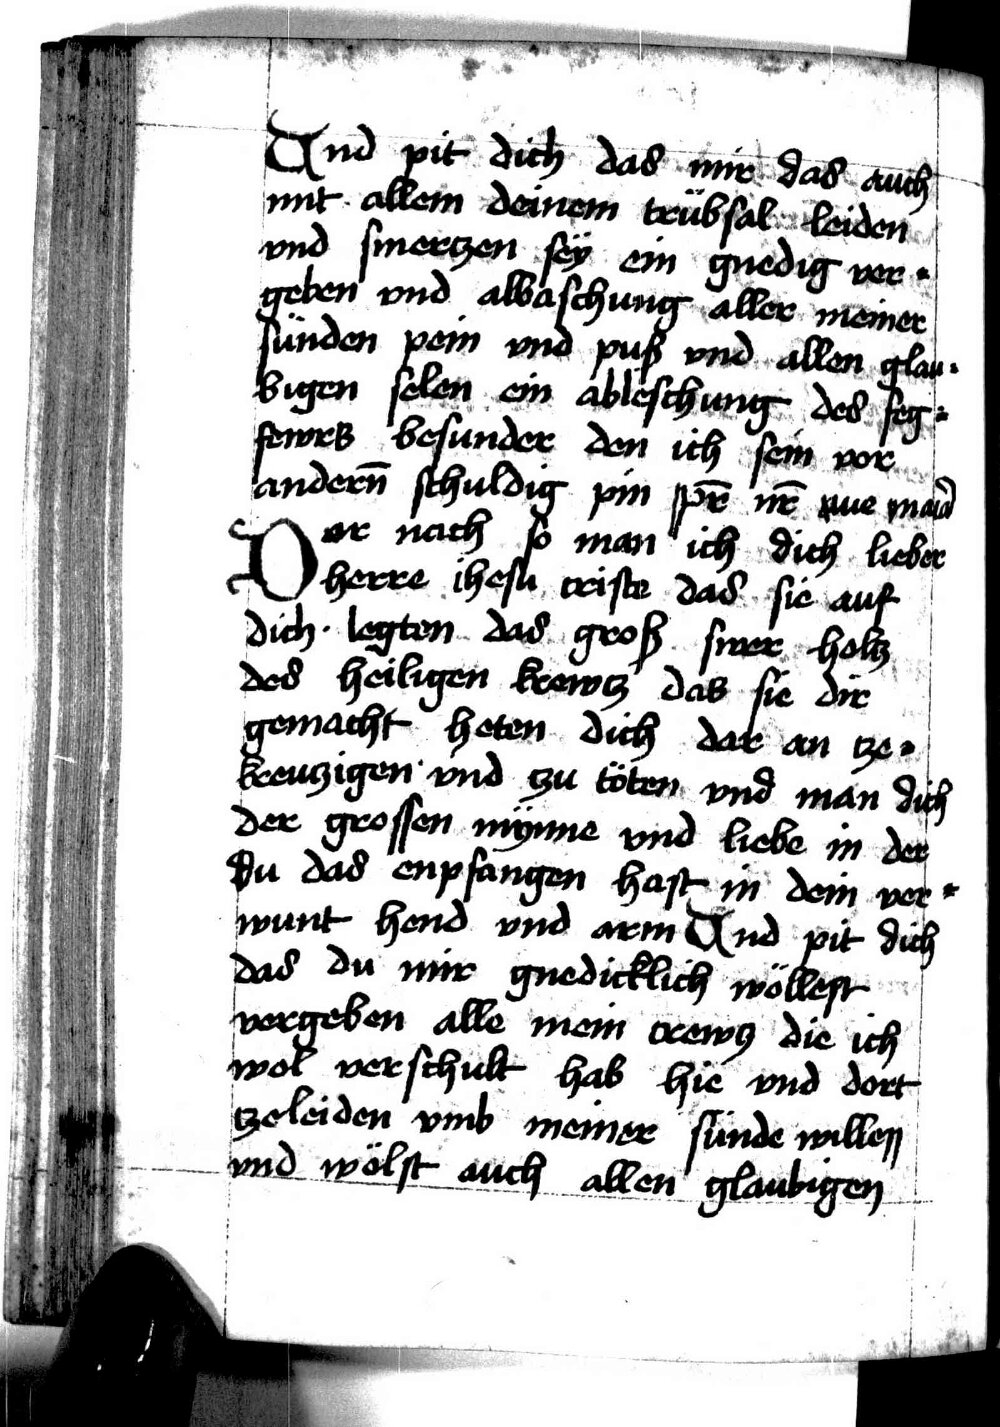 Und pit dich das mir das auch
mit allem deinem trübsal leiden
vnd smertzen seÿ ein gnedig ver-
geben vnd abbaschung aller meiner
sünden pein vnd puß vnd allen glau-
bigen selen ein ableschung des feg-
fewrs besunder den ich sein vor
andern̄ schuldig pin pr̄ nr̄ aue maria
Dar nach so man ich dich lieber
herre ihesu criste das sie auf
dich legten das groß swer holtz
des heiligen krewtz das sie dir
gemacht heten dich dar an tze-
kreutzigen vnd tzu töten vnd man dich
der grossen mÿnne vnd liebe in der
du das enpfangen hast in dein ver-
wunt hend vnd arm Und pit dich
das du mir gnedicklich wöllest
vergeben alle mein crewtz die ich
wol verschult hab hie vnd dort
tzeleiden vmb meiner sünde willen
vnd wölst auch allen glaubigen